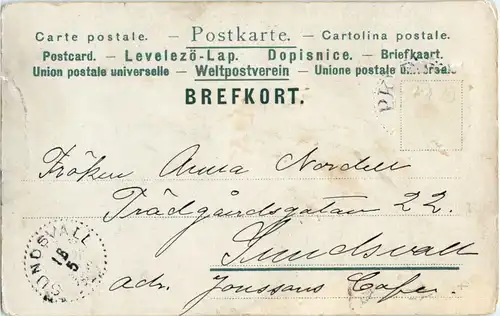 Carte postale. – Postkarte. – Cartolina postale.
Postcard. – Levelezö-Lap. Dopisnice. – Briefkaart.
Union postale universelle – Weltpostverein – Unione postale universale
BREFKORT.
Fröken Anna Nordell
Trädgårdsgatan 22.
Sundsvall
adr. Jonssons Café.
SUNDSVALL
18
5